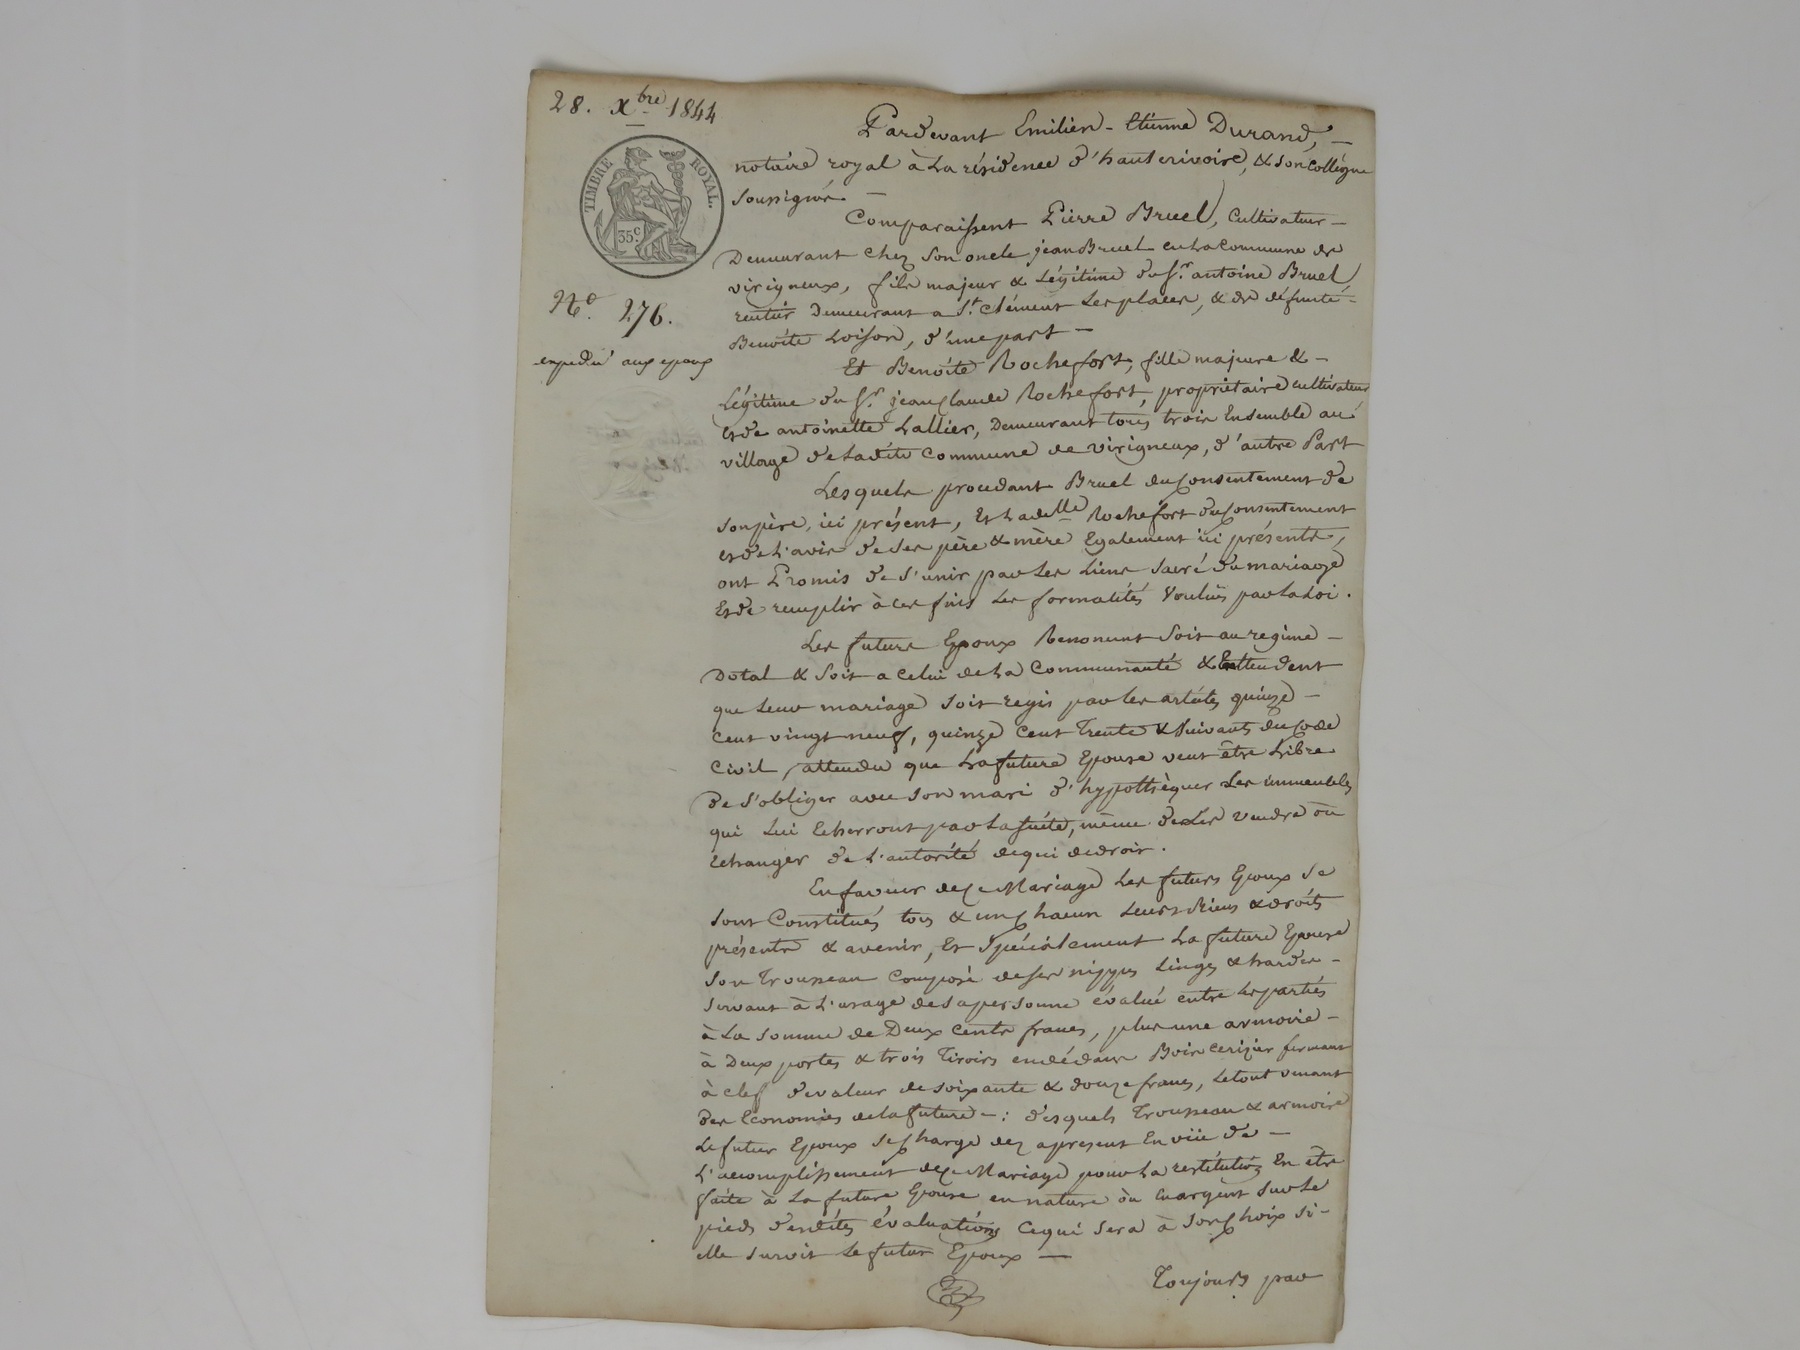 28. Xbre 1844
TIMBRE ROYAL.
35c.
No. 276.
expédié aux epoux
Pardevant Emilien-Etienne Durand, –
notaire royal à La résidence d'hauterivoire, & son Collégue
soussignés –
Comparaissent Pierre Bruel, Cultivateur –
Demeurant chez son oncle jean Bruel en La Commune de
virigneux, fils majeur & Légitime du Sr. antoine Bruel
rentier Demeurant a St. Clément Les places, & de défunte –
Benoite Loison, d'une part –
Et Benoite Rochefort, fille majeure & –
Légitime du Sr. jean Claude Rochefort, propriétaire cultivateur
et de antoinette Lallier, Demeurant tous trois Ensemble au
village de Ladite Commune de virigneux, d'autre Part
Lesquels procédant Bruel du Consentement de
son père, ici présent, Et Ladelle Rochefort du Consentement
et de L'avis de ses père & mère Egalement ici présents,
ont Promis de s'unir par Les Liens sacré du mariage
Et de remplir à ces fins Les formalités Voulues par La Loi.
Les futurs Epoux Renoncent Soit au regime –
Dotal & Soit a celui de La Communauté & Entendent
que Leur mariage soit regis par les articles quinze –
Cent vingt neuf, quinze Cent Trente & Suivants du Code
Civil, attendu que La future Epouse veut être Libre
De s'obliger avec son mari d'hypothèquer Les immeubles
qui Lui Echerront par La suite, même de Les Vendre ou
Echanger de L'autorité de qui de droit.
En faveur de ce Mariage Les futurs Epoux Se
sont Constitués tous & un Chacun Leurs Biens & droits
présents & avenir, Et Spécialement La future Epouse
Son Trousseau Composé de ses nippes Linges & hardes –
servant à L'usage de sa personne évalué entre Les parties
à La somme de Deux Cents francs, plus une armoire –
à Deux portes & trois Tiroirs en dédans Bois cerizier fermant
à clef de valeur de soixante & douze francs, Le tout venant
Des Economies de la future – : desquels Trousseau & armoire
Le futur Epoux se Charge dez apresent En vüe de –
L'accomplissement de ce Mariage pour La restitution En être
faite à La future Epouse en nature ou En argent sur Le
pied desdites évaluations Ce qui sera à son Choix si –
elle survit Le futur Epoux –
Toujours par